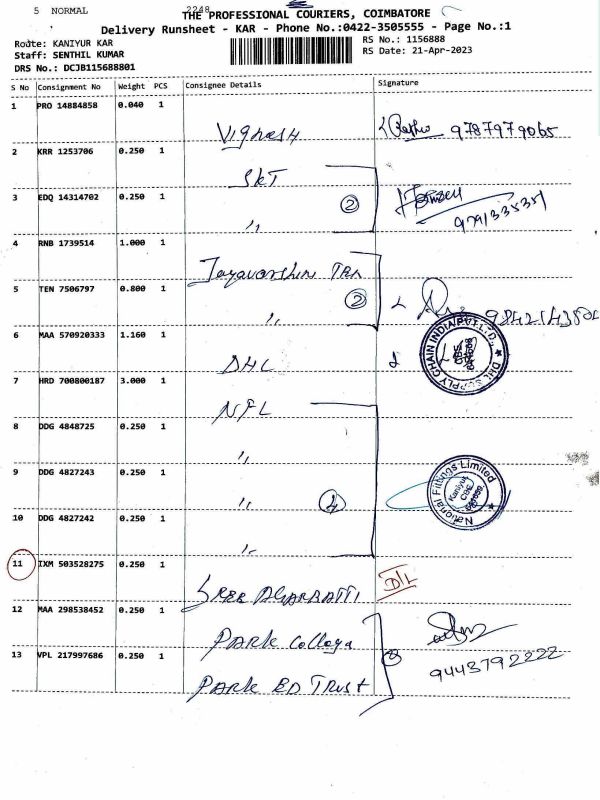 5 NORMAL 2248
THE PROFESSIONAL COURIERS, COIMBATORE
Delivery Runsheet - KAR - Phone No.:0422-3505555 - Page No.:1
Route: KANIYUR KAR RS No.: 1156888
Staff: SENTHIL KUMAR RS Date: 21-Apr-2023
DRS No.: DCJB115688801
S No Consignment No Weight PCS Consignee Details Signature
1 PRO 14884858 0.040 1
Vignesh 9787979065
2 KRR 1253706 0.250 1
SKT
3 EDQ 14314702 0.250 1 2
〃 9791335351
4 RNB 1739514 1.000 1
5 TEN 7506797 0.800 1 2
〃
6 MAA 570920333 1.160 1
DHL
DHL SUPPLY CHAIN INDIA PVT. LTD.
7 HRD 700800187 3.000 1
NFL
8 DDG 4848725 0.250 1
〃
9 DDG 4827243 0.250 1
〃 4
National Fittings Limited
Kaniyur
CBE
10 DDG 4827242 0.250 1
〃
11 IXM 503528275 0.250 1 D/L
12 MAA 298538452 0.250 1
Park College
13 VPL 217997686 0.250 1
9443792222
Park ED Trust